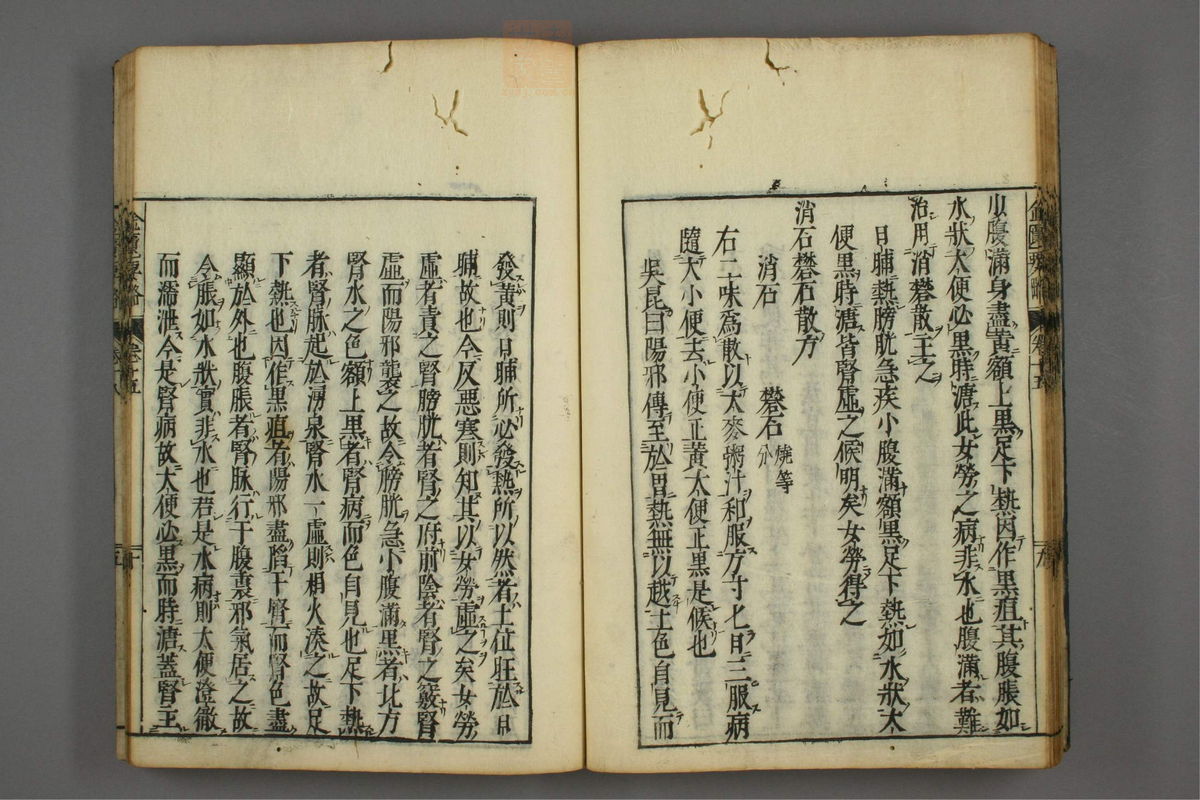 少腹滿身盡黃額上黑足下熱因作黑疸其腹脹如
水狀大便必黒時溏此女勞之病非水也腹滿者難
治用消礬散主之
日晡熱膀胱急疾小腹滿額黑足下熱如水狀大
便黒時溏皆腎虛之候明矣女勞得之
消石礬石散方
消石　礬石燒等分
右二味爲散以大麥粥汁和服方寸匕日三服病
隨大小便去小便正黃大便正黒是候也
吳昆曰陽邪傳至於胃熱無以越土色自見而
發黃則日晡所必發熱所以然者土位旺於日
晡故也今反惡寒則知其以女勞虛之矣女勞
虛者責之腎膀胱者腎之府前陰者腎之竅腎
虛而陽邪襲之故令膀胱急小腹滿黒者北方
腎水之色額上黒者腎病而色自見也足下熱
者腎脉起於湧泉腎水一虛則相火湊之故足
下熱也因作黒疸者陽邪盡陷于腎而腎色盡
顯於外也腹脹者腎脉行于腹裏邪氣居之故
令脹如水狀實非水也若是水病則大便澄徹
而濡泄今是腎病故大便必黒而時溏蓋腎主